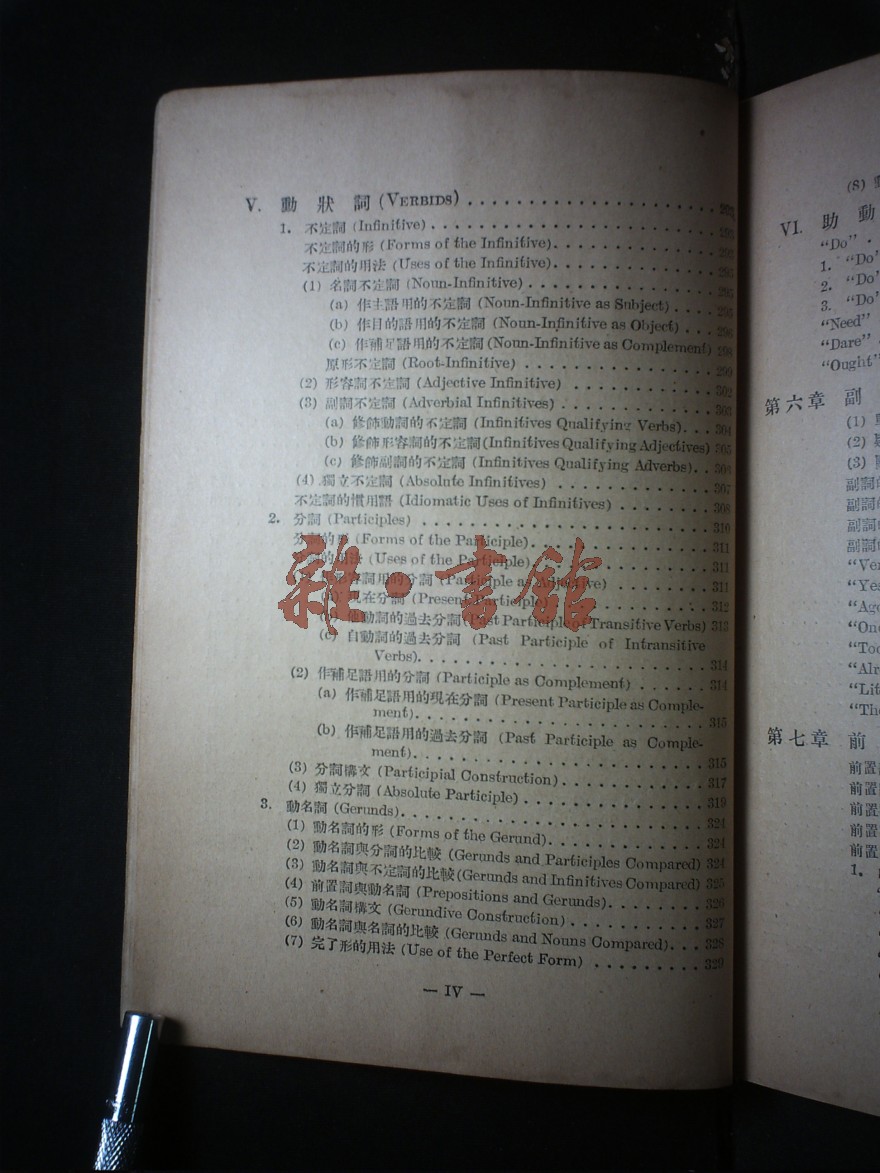 V. 動狀詞 (VERBIDS) . . . . . . . . . . . . . . . . . . . . 293
1. 不定詞 (Infinitive) . . . . . . . . . . . . . . . . . . 293
不定詞的形 (Forms of the Infinitive) . . . . . . . . . . 293
不定詞的用法 (Uses of the Infinitive) . . . . . . . . . . 293
(1) 名詞不定詞 (Noun-Infinitive) . . . . . . . . . . 295
(a) 作主語用的不定詞 (Noun-Infinitive as Subject) . . . . 295
(b) 作目的語用的不定詞 (Noun-Infinitive as Object) . . . 296
(c) 作補足語用的不定詞 (Noun-Infinitive as Complement) 298
原形不定詞 (Root-Infinitive) . . . . . . . . . . 299
(2) 形容詞不定詞 (Adjective Infinitive) . . . . . . . . 302
(3) 副詞不定詞 (Adverbial Infinitives) . . . . . . . . 303
(a) 修飾動詞的不定詞 (Infinitives Qualifying Verbs) . . . 304
(b) 修飾形容詞的不定詞 (Infinitives Qualifying Adjectives) 305
(c) 修飾副詞的不定詞 (Infinitives Qualifying Adverbs) . . 306
(4) 獨立不定詞 (Absolute Infinitives) . . . . . . . . 307
不定詞的慣用語 (Idiomatic Uses of Infinitives) . . . . . . 308
2. 分詞 (Participles) . . . . . . . . . . . . . . . . 310
分詞的形 (Forms of the Participle) . . . . . . . . . . 311
的用法 (Uses of the Participle) . . . . . . . . . . 311
容詞用的分詞 (Participle as Adjective) 311
現在分詞 (Present Participle) . . . . . . . . 312
動詞的過去分詞 (Past Participle of Transitive Verbs) 313
(c) 自動詞的過去分詞 (Past Participle of Intransitive
Verbs) . . . . . . . . . . . . . . . . 314
(2) 作補足語用的分詞 (Participle as Complement) . . . . . . 314
(a) 作補足語用的現在分詞 (Present Participle as Comple-
ment) . . . . . . . . . . . . . . . . 315
(b) 作補足語用的過去分詞 (Past Participle as Comple-
ment) . . . . . . . . . . . . . . . . 315
(3) 分詞構文 (Participial Construction) . . . . . . . . 317
(4) 獨立分詞 (Absolute Participle) . . . . . . . . . . 319
3. 動名詞 (Gerunds) . . . . . . . . . . . . . . . . 324
(1) 動名詞的形 (Forms of the Gerund) . . . . . . . . 324
(2) 動名詞與分詞的比較 (Gerunds and Participles Compared) 324
(3) 動名詞與不定詞的比較 (Gerunds and Infinitives Compared) 325
(4) 前置詞與動名詞 (Prepositions and Gerunds) . . . . . . 326
(5) 動名詞構文 (Gerundive Construction) . . . . . . . . 327
(6) 動名詞與名詞的比較 (Gerunds and Nouns Compared) . . . 328
(7) 完了形的用法 (Use of the Perfect Form) . . . . . . . . 329
— IV —
雜·書館
(8)
VI. 助動
"Do" .
1. "Do"
2. "Do"
3. "Do"
"Need"
"Dare"
"Ought"
第六章 副
(1)
(2)
(3)
副詞
副詞
副詞
副詞
"Ver
"Yes
"Ago
"Onc
"Too
"Alr
"Lit
"The
第七章 前
前置
前置
前置
前置
前置
1.